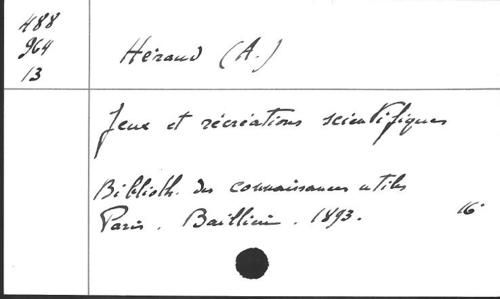 488
964
13
Héraud (A.)
Jeux et récréations scientifiques
Biblioth. des connaissances utiles
Paris. Baillière. 1893. 16°